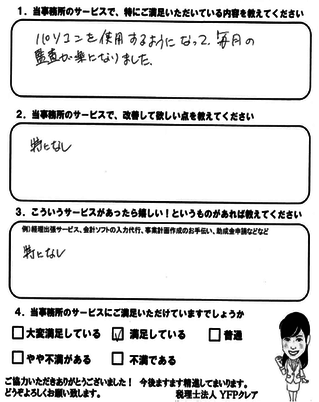 1．当事務所のサービスで、特にご満足いただいている内容を教えてください
パソコンを使用するようになって、毎月の
監査が楽になりました。
2．当事務所のサービスで、改善して欲しい点を教えてください
特になし
3．こういうサービスがあったら嬉しい！というものがあれば教えてください
例）経理出張サービス、会計ソフトの入力代行、事業計画作成のお手伝い、助成金申請などなど
特になし
4．当事務所のサービスにご満足いただけていますでしょうか
□大変満足している ☑満足している □普通
□やや不満がある □不満である
ご協力いただきありがとうございました！ 今後ますます精進してまいります。
どうぞよろしくお願い致します。 税理士法人 YFPクレア